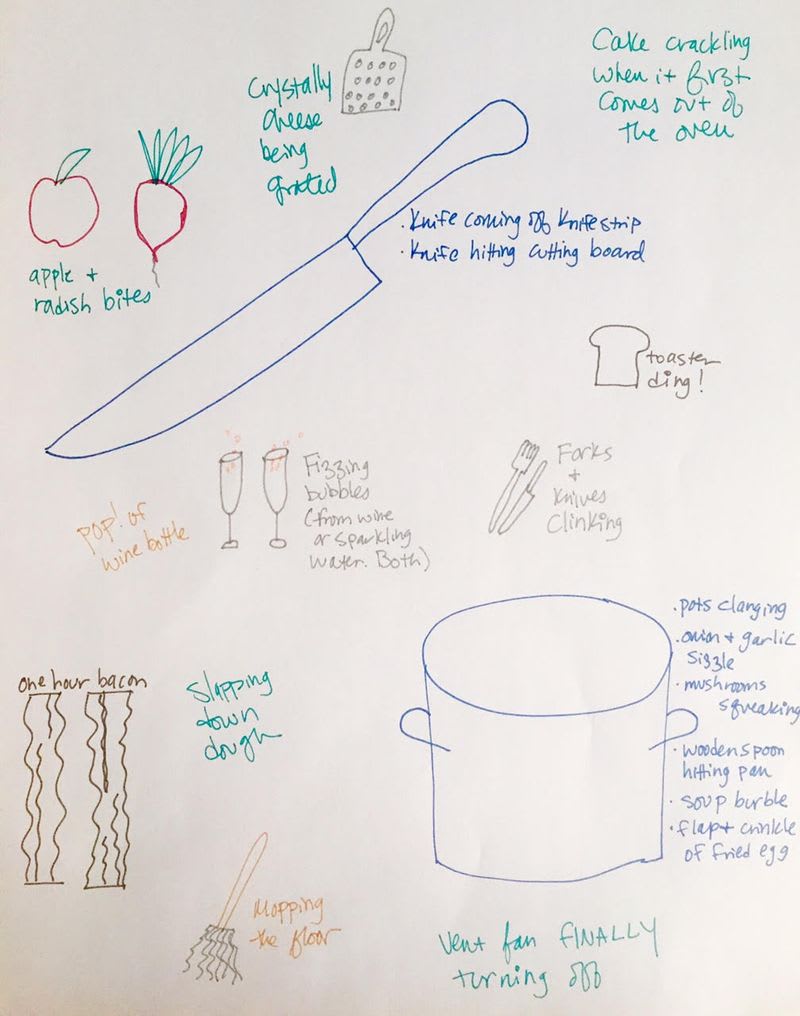 Crystally
cheese
being
grated
Cake crackling
when it first
comes out of
the oven
apple +
radish bites
· Knife coming off knife strip
· Knife hitting cutting board
toaster
ding!
Fizzing
bubbles
(from wine
or sparkling
water. Both)
pop! of
wine bottle
Forks
+
knives
clinking
one hour bacon
slapping
down
dough
· pots clanging
· onion + garlic
sizzle
· mushrooms
squeaking
· wooden spoon
hitting pan
· soup burble
· flap + crinkle
of fried egg
Mopping
the floor
Vent fan FINALLY
turning off